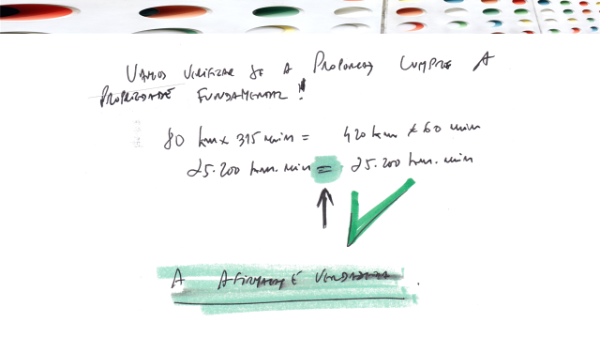 VAMOS VERIFICAR SE A PROPORÇÃO CUMPRE A
PROPRIEDADE FUNDAMENTAL!
80 km x 315 min = 420 km x 60 min
25.200 km.min = 25.200 km.min
A AFIRMAÇÃO É VERDADEIRA.